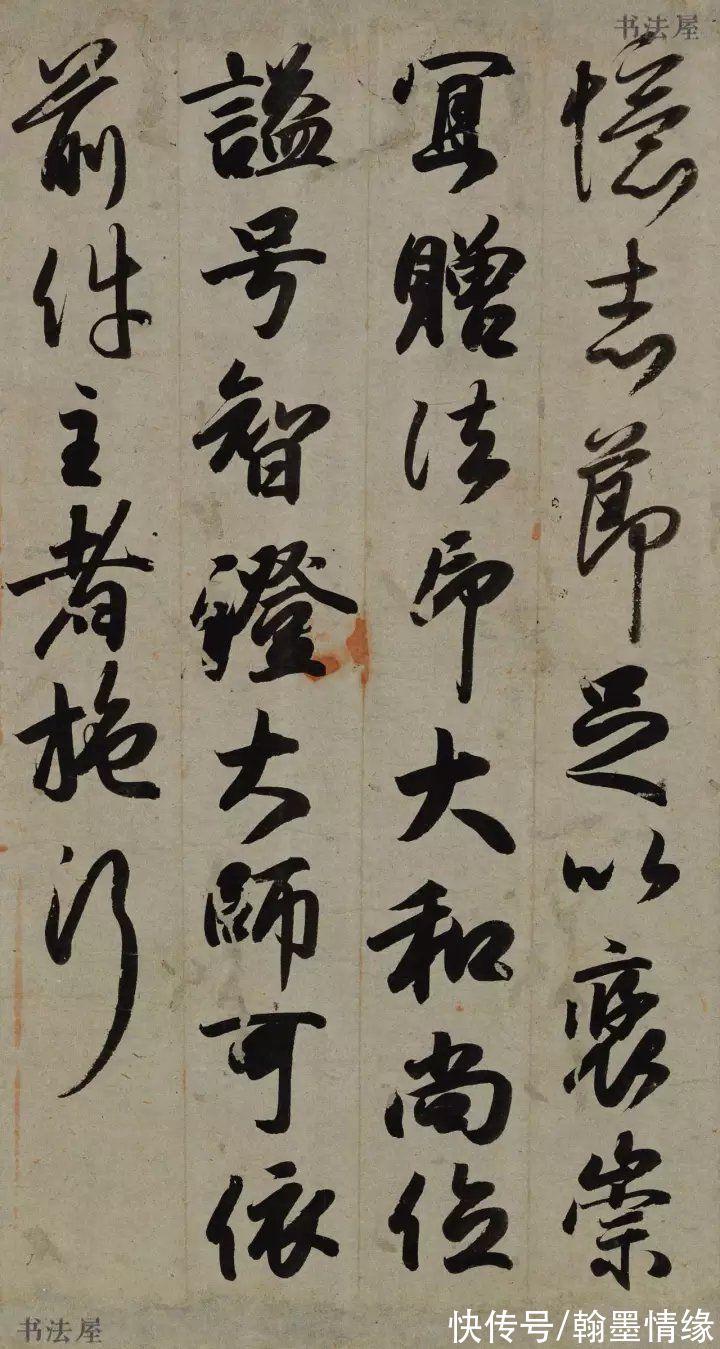 憶志節足以褒崇
宜贈法印大和尚位
謚号智證大師可依
前件主者施行
书法屋
书法屋
快传号/翰墨情缘